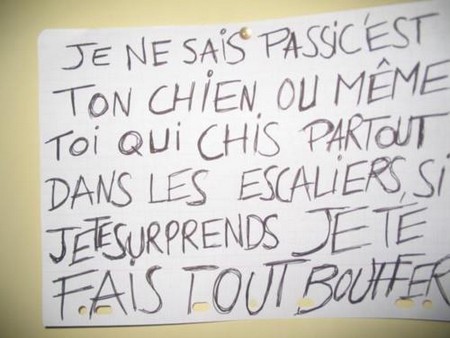 JE NE SAIS PAS SI C'EST
TON CHIEN OU MÊME
TOI QUI CHIS PARTOUT
DANS LES ESCALIERS, SI
JE TE SURPRENDS JE TÉ
FAIS TOUT BOUFFER